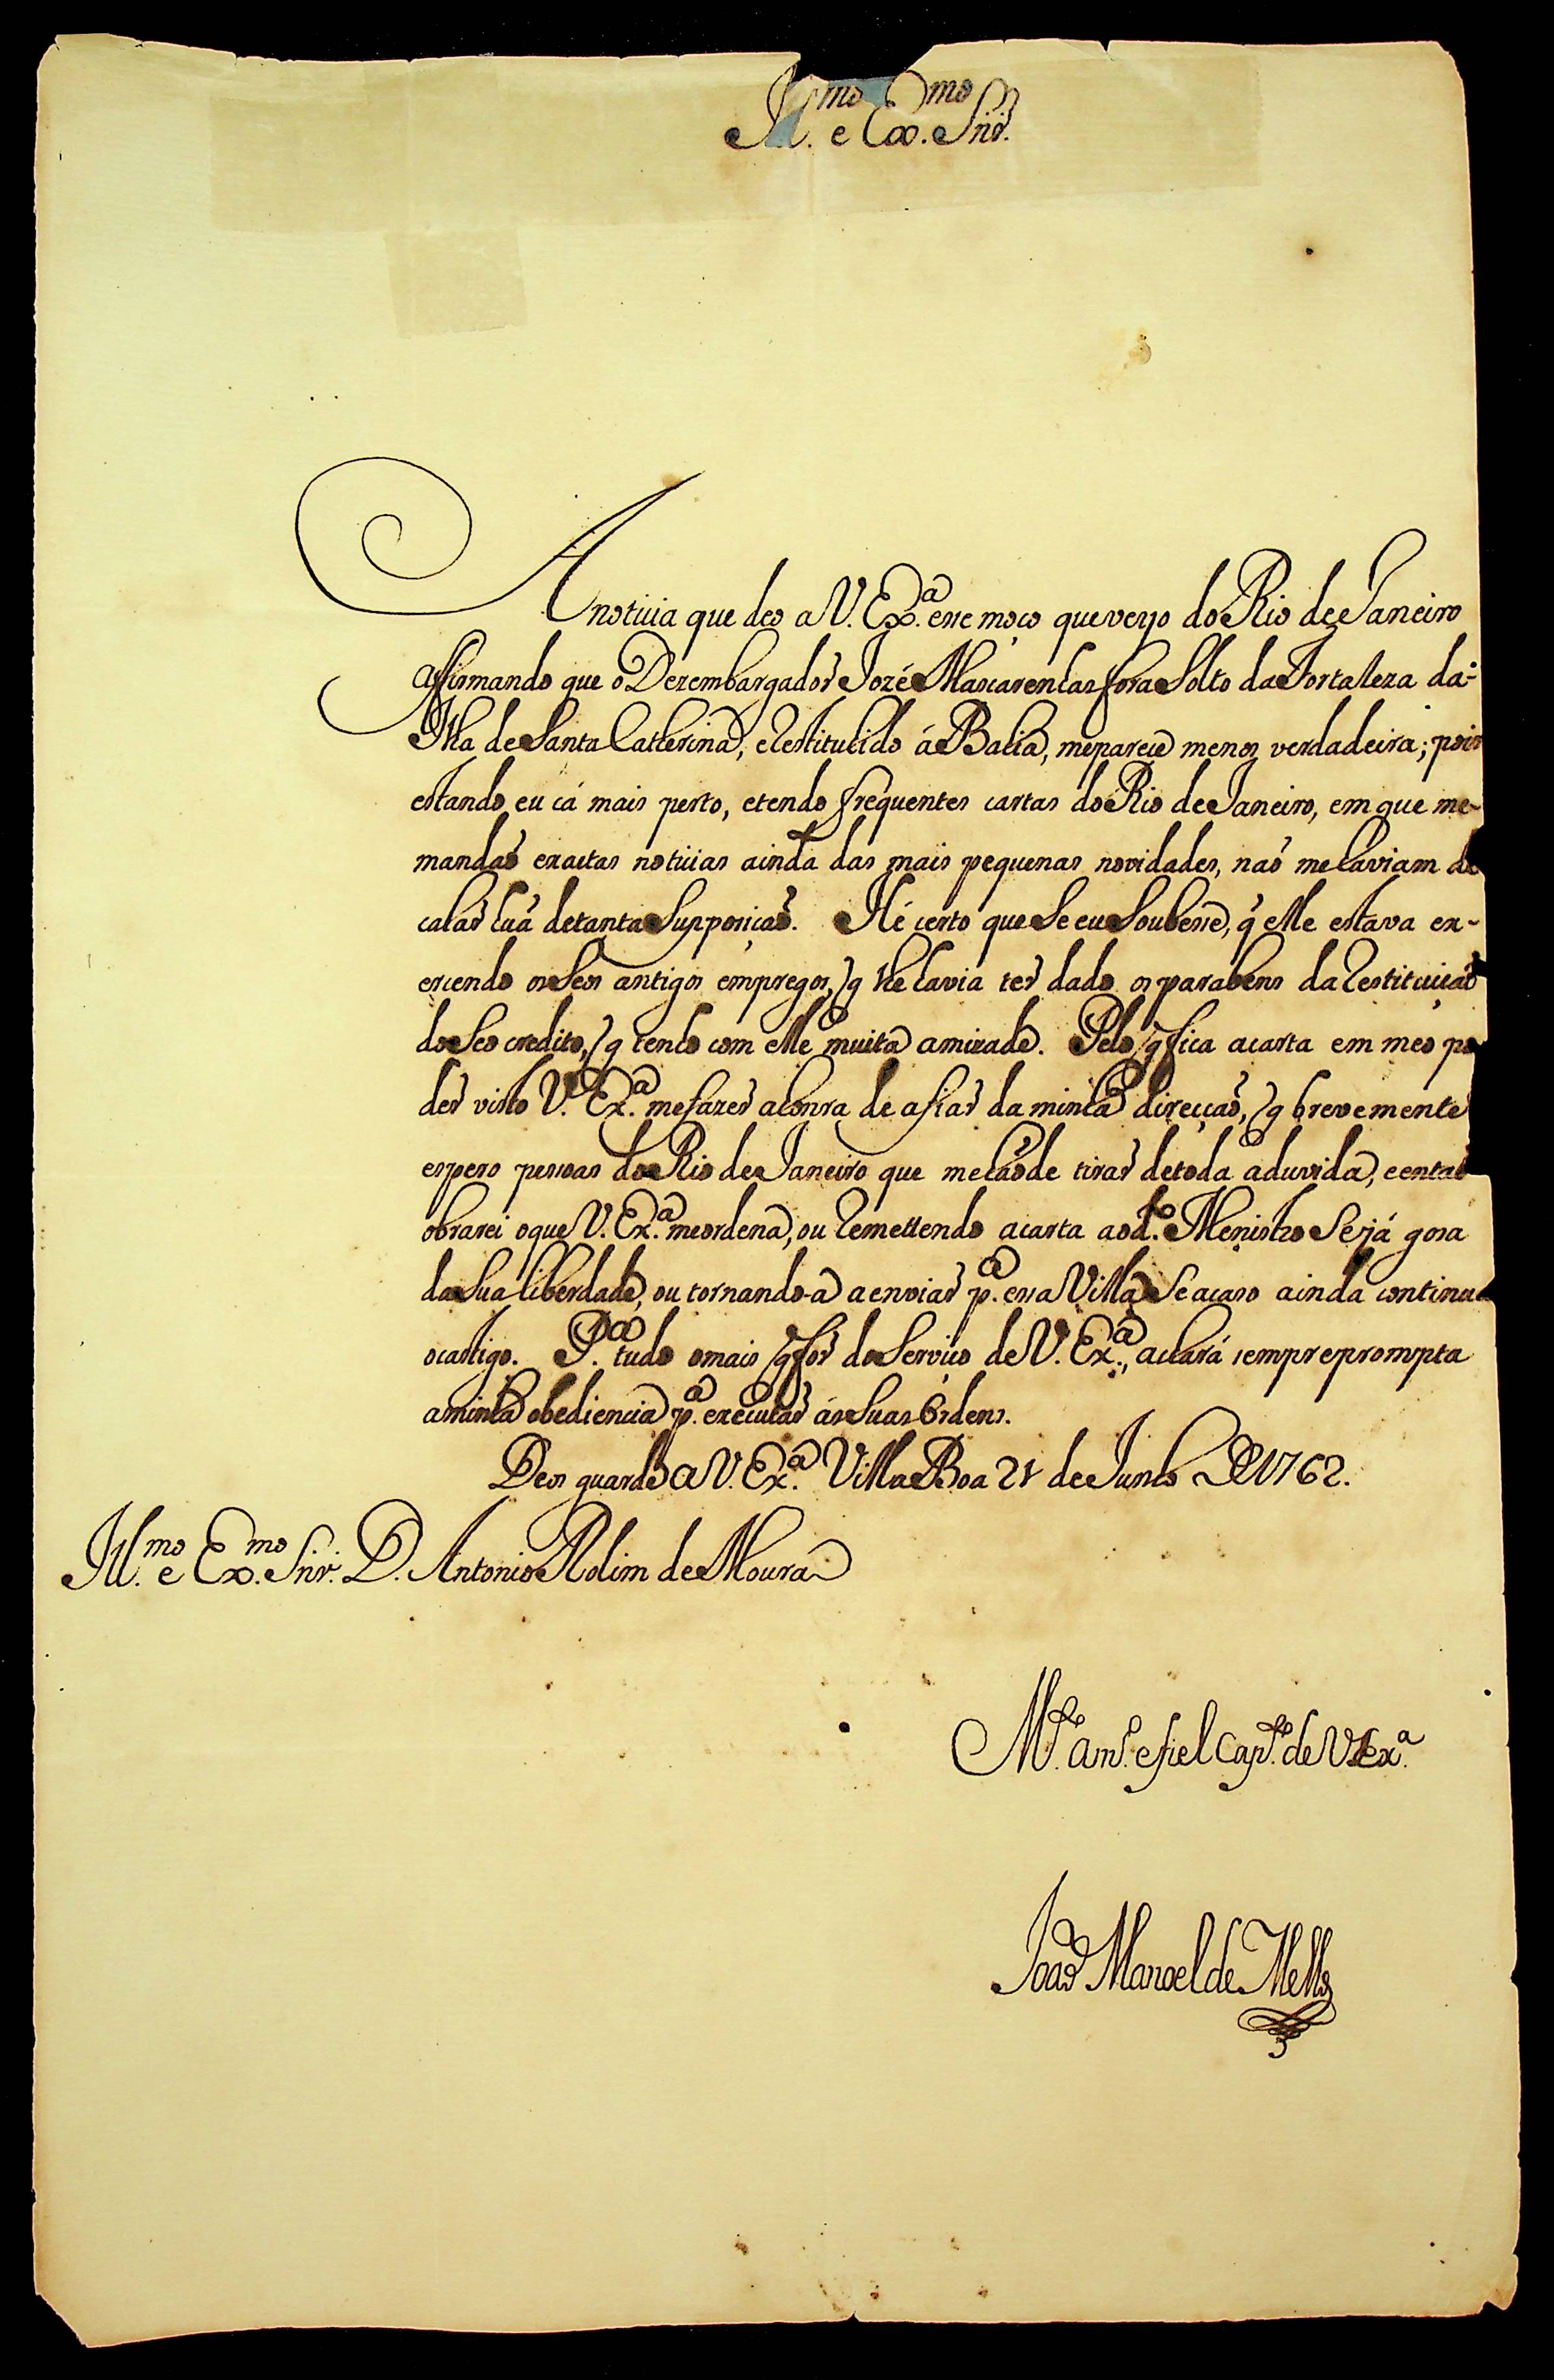 Ill.mo e Ex.mo Snr.
A noticia que deo a V. Ex.a esse moço que veyo do Rio de Janeiro
affirmando que o Dezembargador Jozé Mascarenhas fora Solto da Fortaleza da
Ilha de Santa Catherina, e Restituhido á Bahia, me parece menos verdadeira; pois
estando eu cá mais perto, e tendo frequentes cartas do Rio de Janeiro, em que me-
mandaõ exactas noticias ainda das mais pequenas novidades, naõ me haviam de
calar huã de tanta Suppoziçaõ. Hé certo que Se eu Soubesse, q̃ elle estava ex-
ercendo os Seos antigos empregos, q̃ lhe havia ter dado os parabens da Restituiçaõ
do Seo credito, q̃ tenho com elle muita amizade. Pelo q̃ fica a carta em meo po
der visto V. Ex.a me fazer a honra de a fiar da minha direcçaõ, q̃ brevemente
espero pessoas do Rio de Janeiro que me haõ de tirar de toda a duvida, e entaõ
obrarei o que V. Ex.a me ordena, ou Remettendo a carta ao d.o Menistro Se já goza
da Sua liberdade, ou tornando-a a enviar p.a essa Villa Se acazo ainda continua
o castigo. P.a tudo o mais q̃ for do Serviço de V. Ex.a, achará sempre prompta
a minha obediencia p.a executar as Suas Ordens.
Deos guarde a V. Ex.a Villa Boa 21 de Junho de 1762.
Ill.mo e Ex.mo Snr. D. Antonio Rolim de Moura
M.to am.o e fiel Cap.to de V Ex.a
Joaõ Manoel de Mello